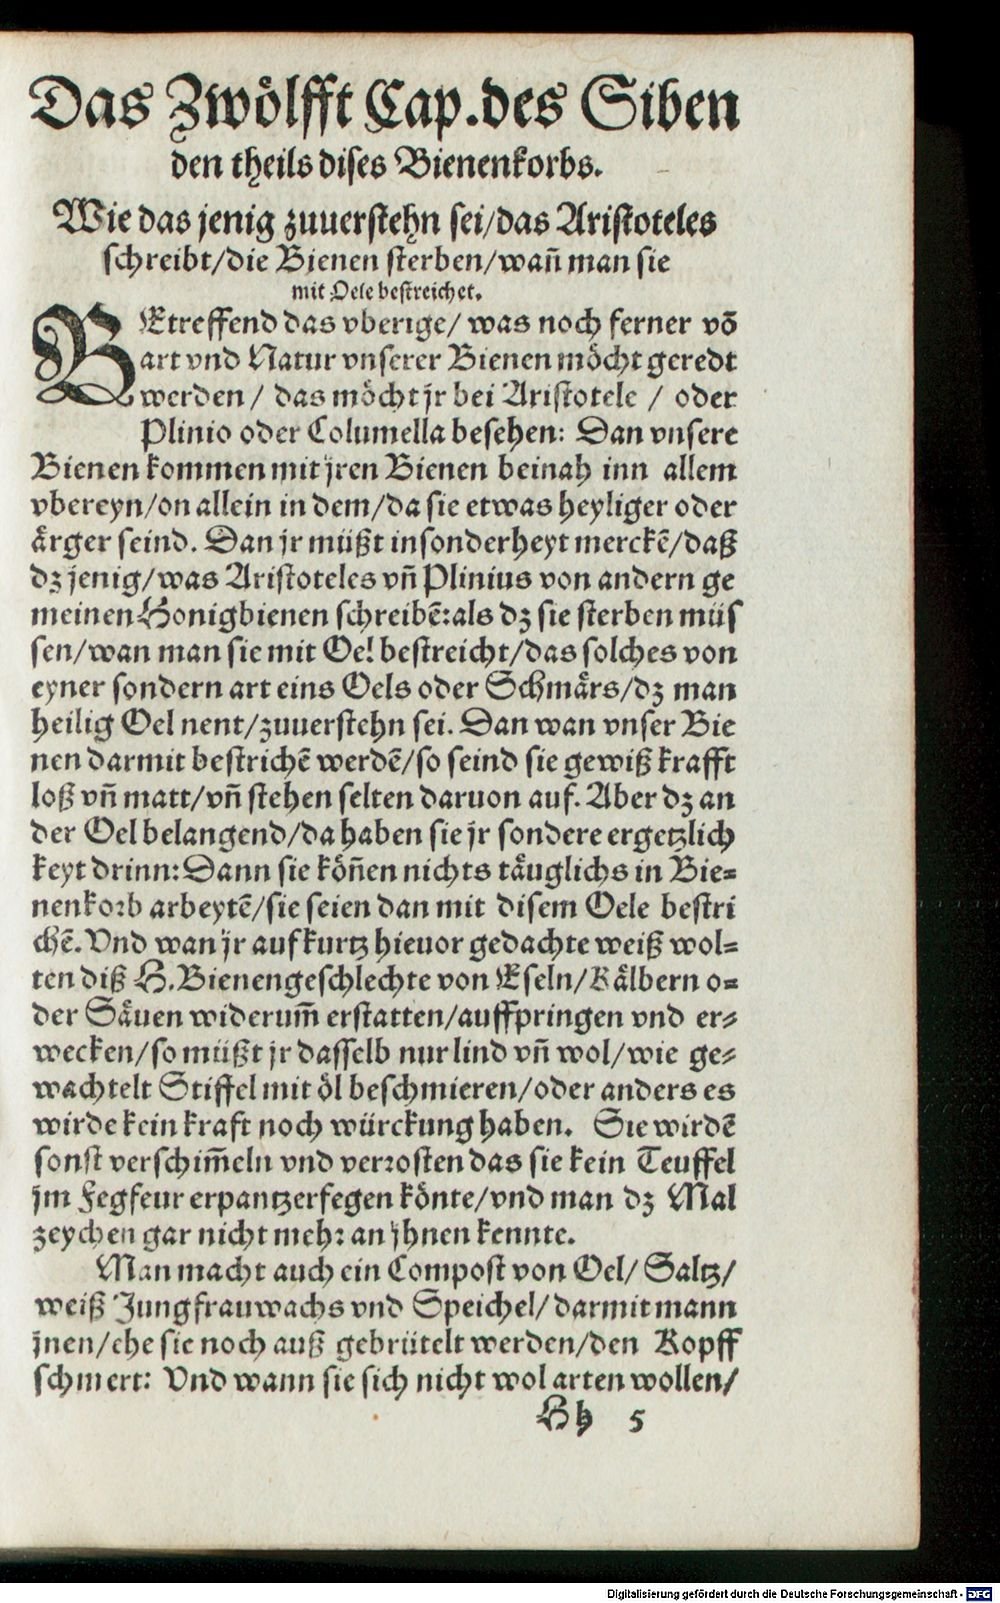 Das Zwölfft Cap. des Siben
den theils dises Bienenkorbs.
Wie das jenig zuuerstehn sei/das Aristoteles
schreibt/die Bienen sterben/wañ man sie
mit Oele bestreichet.
BEtreffend das vberige/ was noch ferner võ
art vnd Natur vnserer Bienen möcht geredt
werden/ das möcht jr bei Aristotele / oder
Plinio oder Columella besehen: Dan vnsere
Bienen kommen mit jren Bienen beinah inn allem
vbereyn/on allein in dem/da sie etwas heyliger oder
ärger seind. Dan jr müßt insonderheyt merckẽ/daß
dz jenig/was Aristoteles vñ Plinius von andern ge
meinen Honigbienen schreibẽ:als dz sie sterben müs
sen/wan man sie mit Oel bestreicht/das solches von
eyner sondern art eins Oels oder Schmärs/dz man
heilig Oel nent/zuuerstehn sei. Dan wan vnser Bie
nen darmit bestrichẽ werdẽ/so seind sie gewiß krafft
loß vñ matt/vñ stehen selten daruon auf. Aber dz an
der Oel belangend/da haben sie jr sondere ergetzlich
keyt drinn: Dann sie köñen nichts täuglichs in Bie=
nenkorb arbeytẽ/sie seien dan mit disem Oele bestri
chẽ. Vnd wan jr auf kurtz hieuor gedachte weiß wol=
ten diß H. Bienengeschlechte von Eseln/Kälbern o=
der Säuen widerum̃ erstatten/auffpringen vnd er=
wecken/so müßt jr dasselb nur lind vñ wol/wie ge=
wachtelt Stiffel mit öl beschmieren/oder anders es
wirde kein kraft noch würckung haben. Sie wirdẽ
sonst verschim̃eln vnd verrosten das sie kein Teuffel
jm Fegfeur erpantzerfegen könte/vnd man dz Mal
zeychen gar nicht mehr an jhnen kennte.
Man macht auch ein Compost von Oel/ Saltz/
weiß Jungfrauwachs vnd Speichel/ darmit mann
jnen/ehe sie noch auß gebrütelt werden/den Kopff
schmert: Vnd wann sie sich nicht wol arten wollen/
Hh 5
Digitalisierung gefördert durch die Deutsche Forschungsgemeinschaft - DFG